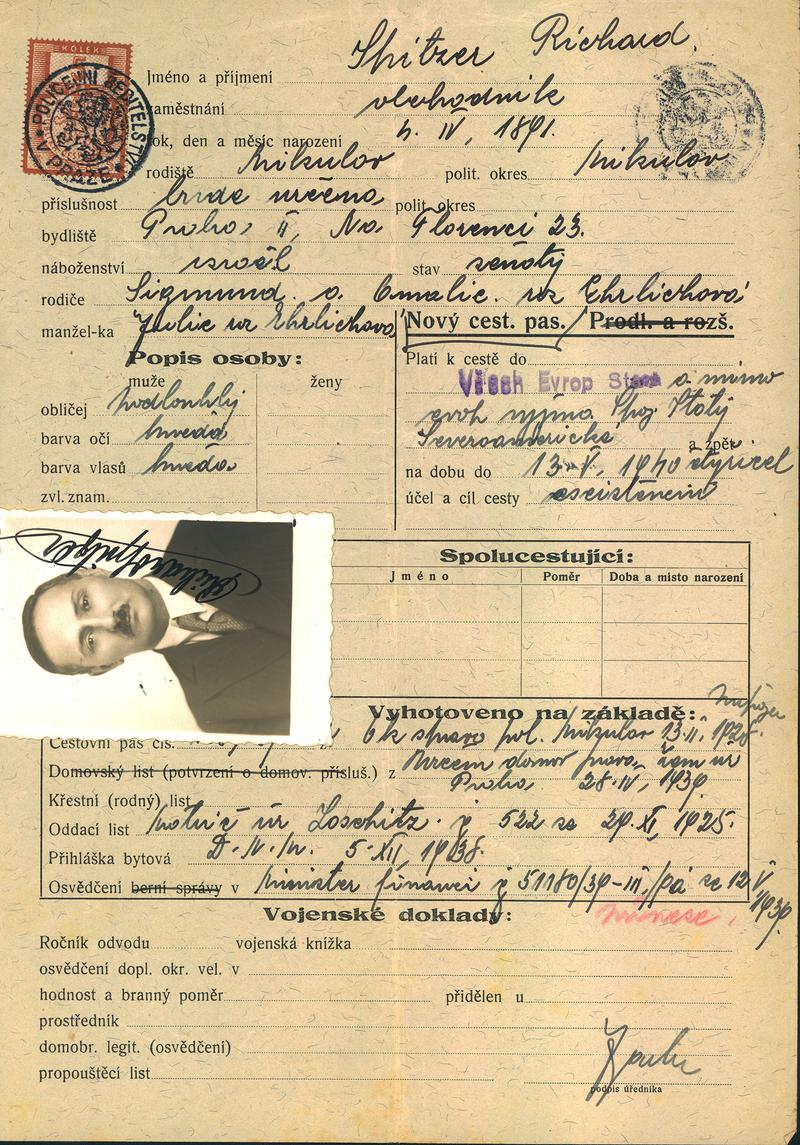 KOLEK
POLICEJNÍ ŘEDITELSTVÍ V PRAZE
Spitzer Richard.
Jméno a příjmení
zaměstnání obchodník
rok, den a měsíc narození 4. IV, 1891.
rodiště Mikulov polit. okres Mikulov
příslušnost bude určena polit. okres
bydliště Praha II, Na Florenci 23.
náboženství israel stav ženatý
rodiče Sigmund a Amalie roz Ehrlichová
manžel-ka Julie roz Ehrlichova Nový cest. pas. / Prodl. a rozš.
Popis osoby:
muže ženy
obličej podlouhlý
barva očí hnědá
barva vlasů hnědá
zvl. znam.
Platí k cestě do
Všech Evrop Států a mimo
evok vyjma Spoj. Státy
Severoamerické a zpět
na dobu do 13. V, 1940 čtyřicet
účel a cíl cesty
Richard Spitzer
Spolucestující:
Jméno Poměr Doba a místo narození
Vyhotoveno na základě:
Cestovní pas čís. Ok správa pol. Mikulov 13. II. 1928.
Domovský list (potvrzení o domov. přísluš.) z
Praha 28. IV, 1939.
Křestní (rodný) list
Oddací list Matrič úř Loschitz č 522 ze 29. XI, 1925.
Přihláška bytová D. N. M. 5. XII, 1938.
Osvědčení berní správy v Minister financí č 51180/39-III,/pá ze 12 V 1939.
Vojenské doklady:
Ročník odvodu vojenská knížka
osvědčení dopl. okr. vel. v
hodnost a branný poměr přidělen u
prostředník
domobr. legit. (osvědčení)
propouštěcí list
podpis úředníka